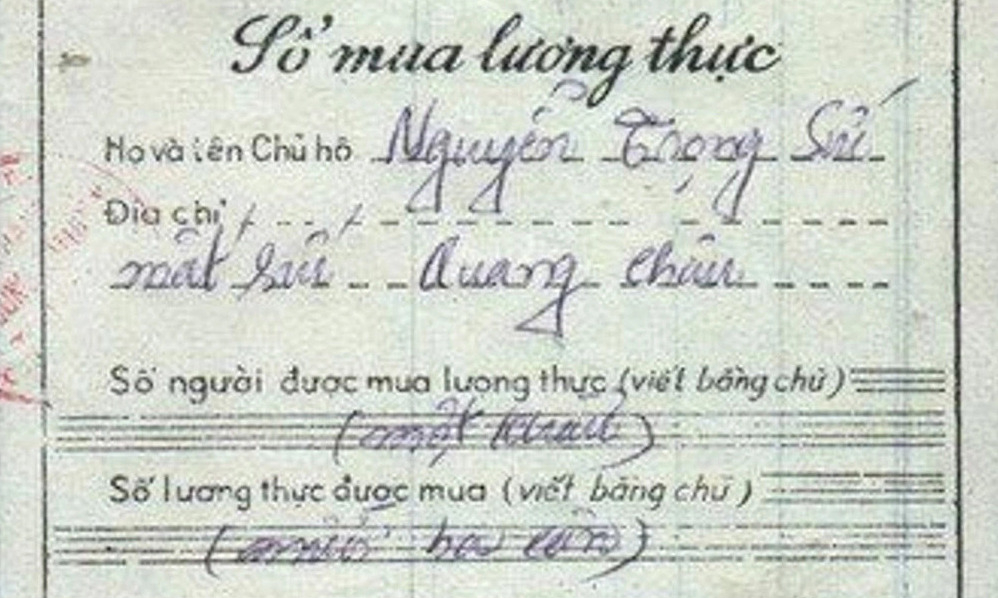 Sổ mua lương thực
Họ và tên Chủ hộ Nguyễn Trọng Sứ
Địa chỉ
mất sứ Quang Châu
Số người được mua lương thực (viết bằng chữ)
(một khẩu)
Số lương thực được mua (viết bằng chữ)
(mười ba cân)